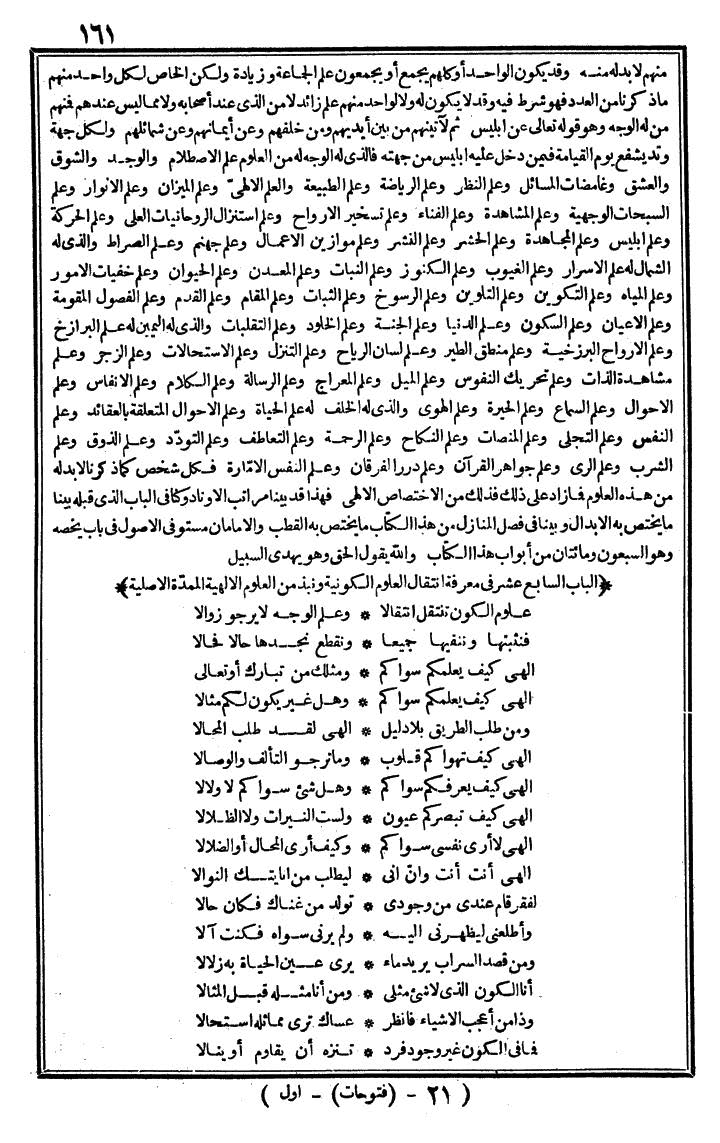 ١٦١
منهم لا بدله منه وقد يكون الواحد أو كلهم يجمع أو يجمعون علم الجماعة وزيادة ولكن الخاص لكل واحد منهم
ماذكرنا من العدد فهو شرط فيه وقد لا يكون له ولا لواحد منهم علم زائد لا من الذى عند أصحابه ولا مما ليس عندهم فنهم
من له الوجه وهو قوله تعالى عن ابليس ثم لآتينهم من بين أيديهم ومن خلفهم وعن أيمانهم وعن شمائلهم ولكل جهة
وتد يشفع يوم القيامة فيمن دخل عليه ابليس من جهته فالذى له الوجه له من العلوم علم الاصطلام والوجد والشوق
والعشق وغامضات المسائل وعلم النظر وعلم الرياضة وعلم الطبيعة والعلم الالهىّ وعلم الميزان وعلم الانوار وعلم
السبحات الوجهية وعلم المشاهدة وعلم الفناء وعلم تسخير الارواح وعلم استنزال الروحانيات العلى وعلم الحركة
وعلم ابليس وعلم المجاهدة وعلم الحشر وعلم النشر وعلم موازين الاعمال وعلم جهنم وعلم الصراط والذى له
الشمال له علم الاسرار وعلم الغيوب وعلم الكنوز وعلم النبات وعلم المعدن وعلم الحيوان وعلم خفيات الامور
وعلم المياه وعلم التكوين وعلم التلوين وعلم الرسوخ وعلم الثبات وعلم المقام وعلم القدم وعلم الفصول المقومة
وعلم الاعيان وعلم السكون وعلم الدنيا وعلم الجنة وعلم الخلود وعلم التقلبات والذى له اليمين له علم البرازخ
وعلم الارواح البرزخية وعلم منطق الطير وعلم لسان الرياح وعلم التنزل وعلم الاستحالات وعلم الزجر وعلم
مشاهدة الذات وعلم تحريك النفوس وعلم الميل وعلم المعراج وعلم الرسالة وعلم الكلام وعلم الانفاس وعلم
الاحوال وعلم السماع وعلم الحيرة وعلم الهوى والذى له الخلف له علم الحياة وعلم الاحوال المتعلقة بالعقائد وعلم
النفس وعلم التجلى وعلم المنصات وعلم النكاح وعلم الرحمة وعلم التعاطف وعلم التودّد وعلم الذوق وعلم
الشرب وعلم الرى وعلم جواهر القرآن وعلم درر الفرقان وعلم النفس الامّارة فكل شخص كما ذكرنا لا بدله
من هذه العلوم فما زاد على ذلك فذلك من الاختصاص الالهى فهذا قد بينا مراتب الاوتاد وكنا فى الباب الذى قبله بينا
ما يختص به الابدال وبينا فى فصل المنازل من هذا الكتاب ما يختص به القطب والامامان مستوفى الاصول فى باب يخصه
وهو السبعون ومائتان من أبواب هذا الكتاب والله يقول الحق وهو يهدى السبيل
﴿الباب السابع عشر فى معرفة انتقال العلوم الكونية ونبذ من العلوم الالهية الممدّة الاصلية﴾
علوم الكون تنتقل انتقالا * وعلم الوجه لا يرجو زوالا
فنثبتها وننفيها جميعا * ونقطع نجدها حالا فحالا
الهى كيف يعلمكم سواكم * ومثلك من تبارك أو تعالى
الهى كيف يعلمكم سواكم * وهل غير يكون لكم مثالا
ومن طلب الطريق بلا دليل * الهى لقد طلب المحالا
الهى كيف تهواكم قلوب * وما ترجو التألف والوصالا
الهى كيف يعرفكم سواكم * وهل شئ سواكم لا ولا لا
الهى كيف تبصركم عيون * ولست النيرات ولا الظلالا
الهى لا أرى نفسى سواكم * وكيف أرى المحال أو الضلالا
الهى أنت أنت وانّ انى * ليطلب من انايتك النوالا
لفقر قام عندى من وجودى * تولد من غناك فكان حالا
وأطلعنى ليظهرنى اليه * ولم يرنى سواه فكنت آلا
ومن قصد السراب يريد ماء * يرى عين الحياة به زلالا
أنا الكون الذى لا شئ مثلى * ومن أنا مثله قبل المثالا
وذا من أعجب الاشياء فانظر * عساك ترى مماثله استحالا
فما فى الكون غير وجود فرد * تنزه أن يقاوم أو ينالا
( ٢١ - (فتوحات) - اول )